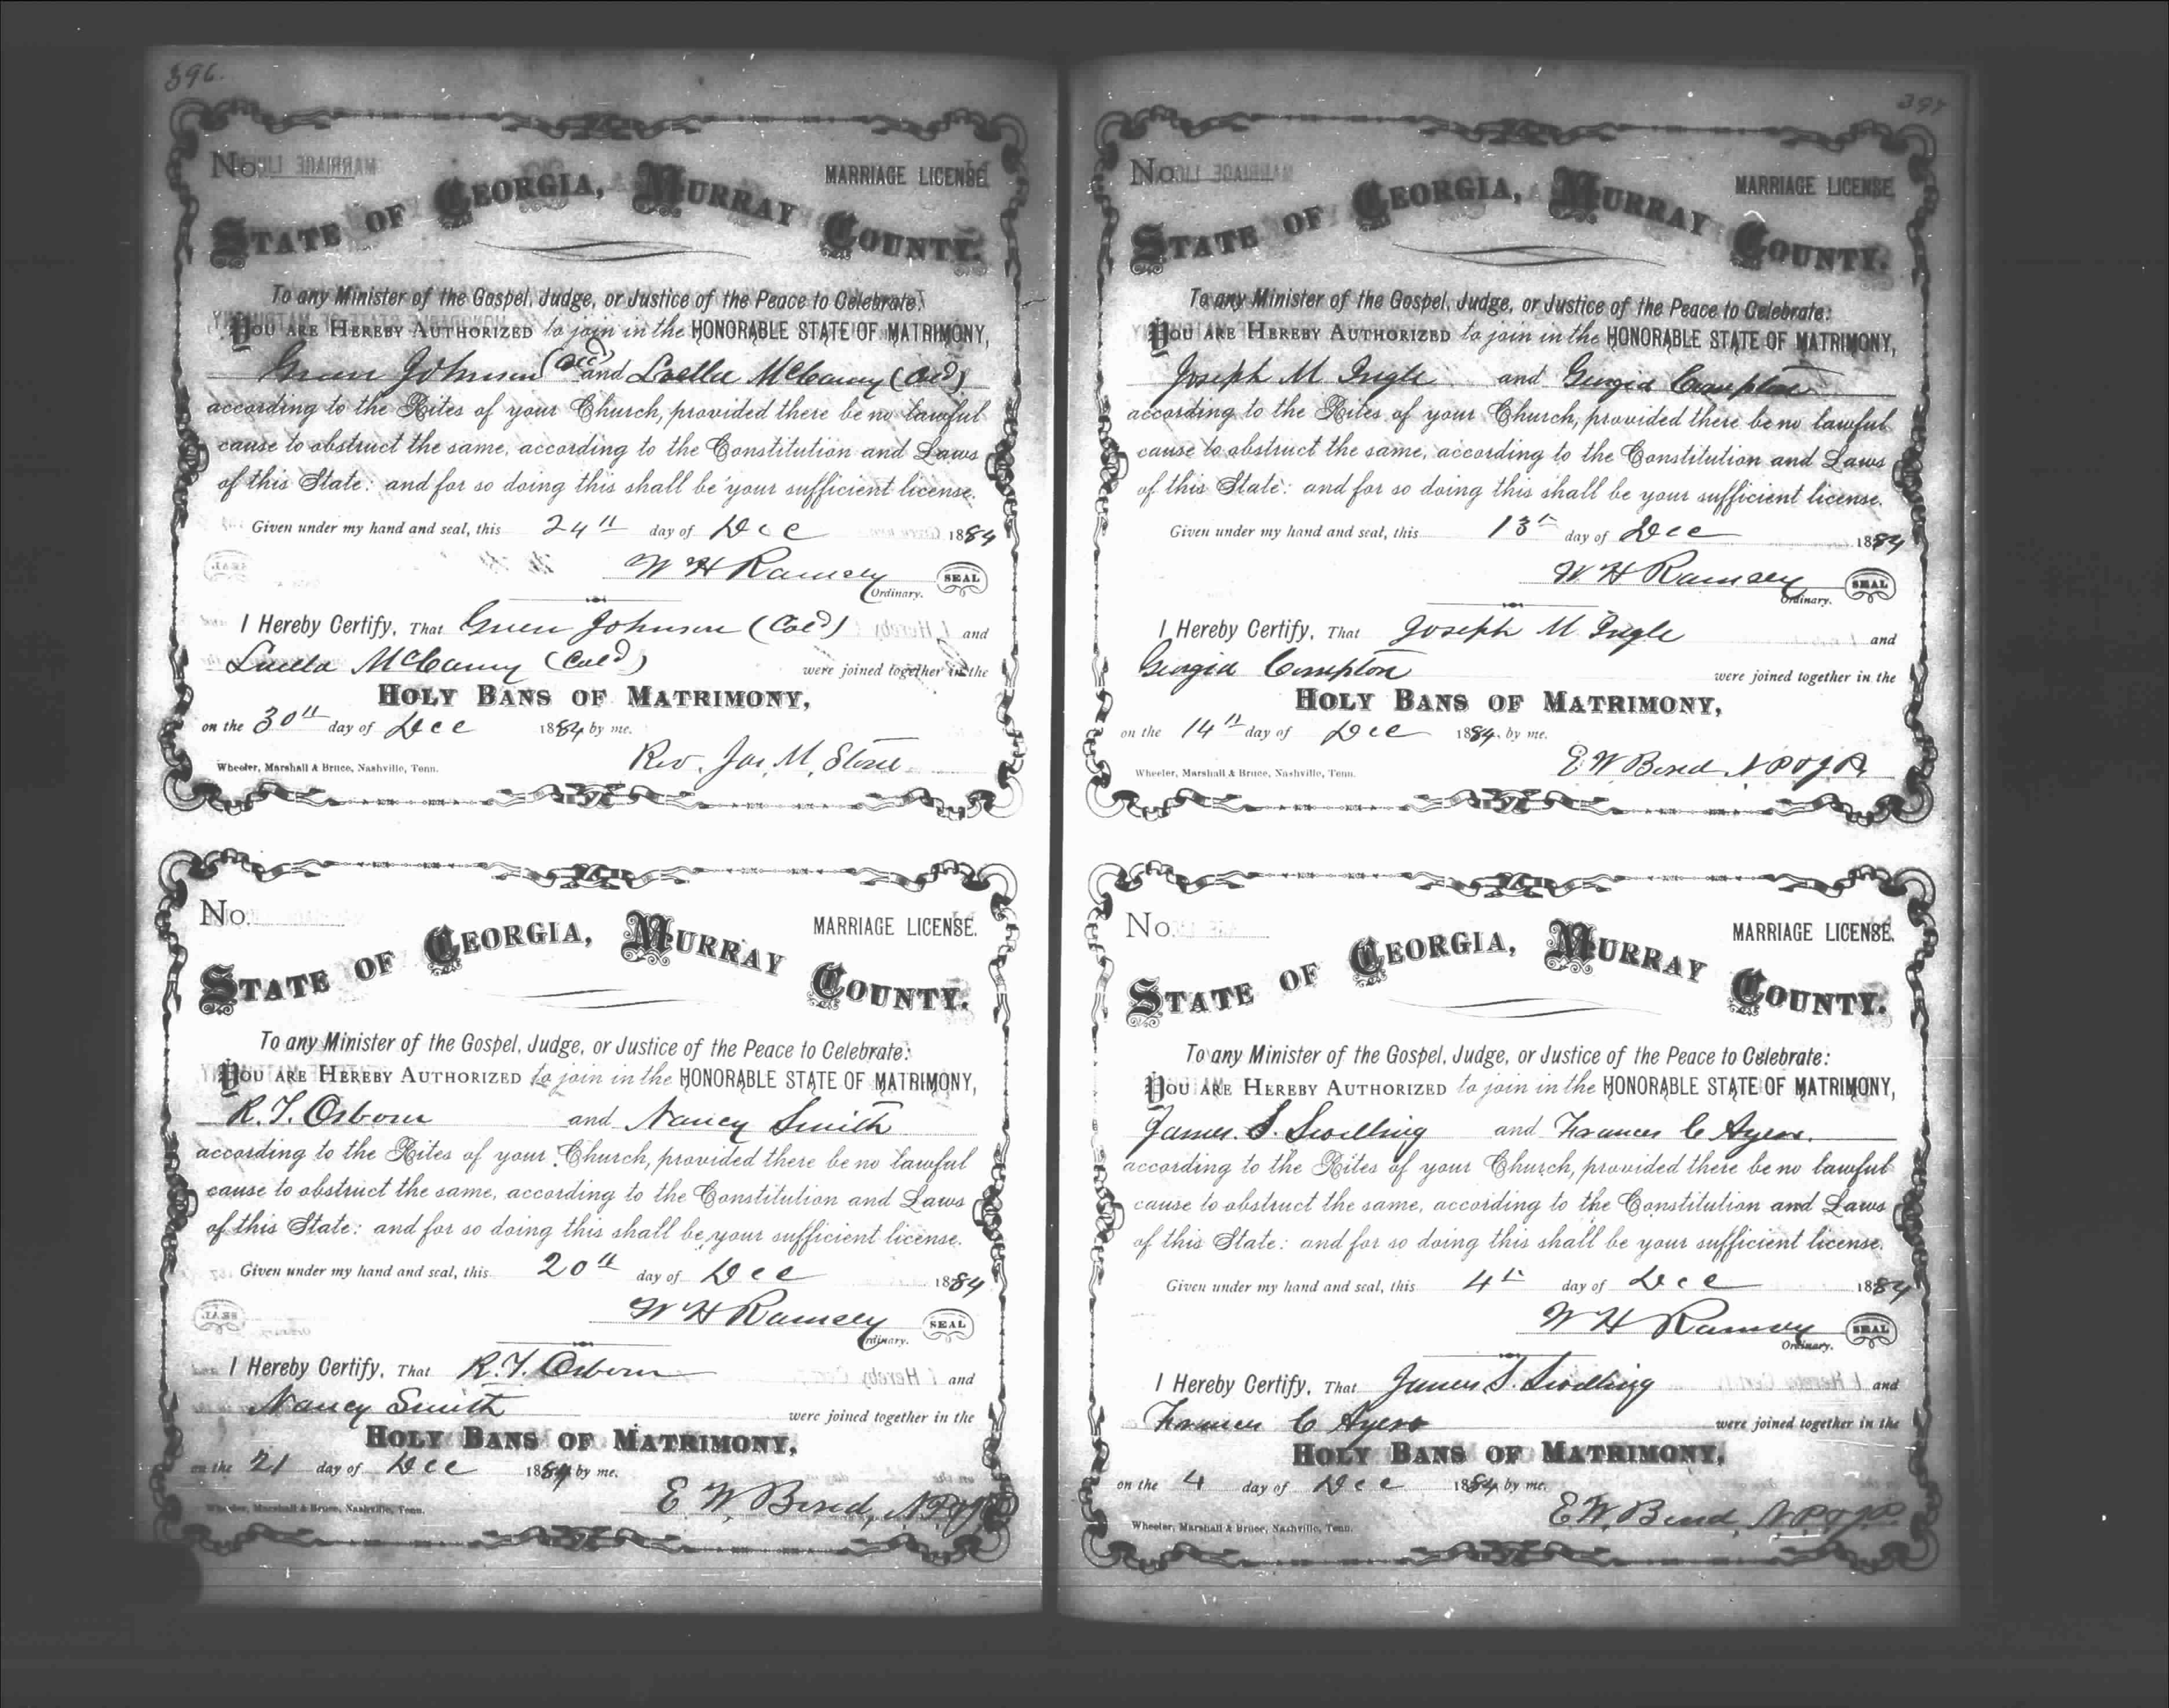 396.
No. MARRIAGE LICENSE
STATE OF GEORGIA, MURRAY COUNTY.
To any Minister of the Gospel, Judge, or Justice of the Peace to Celebrate:
YOU ARE HEREBY AUTHORIZED to join in the HONORABLE STATE OF MATRIMONY,
Johnson (Cold) and Luella McCamy (Cold)
according to the Rites of your Church, provided there be no lawful
cause to obstruct the same, according to the Constitution and Laws
of this State: and for so doing this shall be your sufficient license.
Given under my hand and seal, this 24th day of Dec 1884
W H Ramsey SEAL
Ordinary.
I Hereby Certify, That Johnson (Cold) and
Luella McCamy (Cold) were joined together in the
HOLY BANS OF MATRIMONY,
on the 30th day of Dec 1884 by me.
Rev. Jas. M. Stone
Wheeler, Marshall & Bruce, Nashville, Tenn.
No. MARRIAGE LICENSE.
STATE OF GEORGIA, MURRAY COUNTY.
To any Minister of the Gospel, Judge, or Justice of the Peace to Celebrate:
YOU ARE HEREBY AUTHORIZED to join in the HONORABLE STATE OF MATRIMONY,
R. T. Osborn and Nancy Smith
according to the Rites of your Church, provided there be no lawful
cause to obstruct the same, according to the Constitution and Laws
of this State: and for so doing this shall be your sufficient license.
Given under my hand and seal, this 20th day of Dec 1884
W H Ramsey SEAL
Ordinary.
I Hereby Certify, That R. T. Osborn and
Nancy Smith were joined together in the
HOLY BANS OF MATRIMONY,
on the 21 day of Dec 1884 by me.
E. W. Bond, N.P. & J.P.
Wheeler, Marshall & Bruce, Nashville, Tenn.
397
No. MARRIAGE LICENSE
STATE OF GEORGIA, MURRAY COUNTY.
To any Minister of the Gospel, Judge, or Justice of the Peace to Celebrate:
YOU ARE HEREBY AUTHORIZED to join in the HONORABLE STATE OF MATRIMONY,
Joseph M Ingle and Georgia Compton
according to the Rites of your Church, provided there be no lawful
cause to obstruct the same, according to the Constitution and Laws
of this State: and for so doing this shall be your sufficient license.
Given under my hand and seal, this 13th day of Dec 1884
W H Ramsey SEAL
Ordinary.
I Hereby Certify, That Joseph M Ingle and
Georgia Compton were joined together in the
HOLY BANS OF MATRIMONY,
on the 14th day of Dec 1884, by me.
E. W. Bond N P & J. P.
Wheeler, Marshall & Bruce, Nashville, Tenn.
No. MARRIAGE LICENSE.
STATE OF GEORGIA, MURRAY COUNTY.
To any Minister of the Gospel, Judge, or Justice of the Peace to Celebrate:
YOU ARE HEREBY AUTHORIZED to join in the HONORABLE STATE OF MATRIMONY,
James. S. Swilling and Frances C Ayers.
according to the Rites of your Church, provided there be no lawful
cause to obstruct the same, according to the Constitution and Laws
of this State: and for so doing this shall be your sufficient license.
Given under my hand and seal, this 4th day of Dec 1884
W H Ramsey SEAL
Ordinary.
I Hereby Certify, That James S. Swilling and
Frances C Ayers were joined together in the
HOLY BANS OF MATRIMONY,
on the 4 day of Dec 1884, by me.
E. W. Bond, N.P. & J.P.
Wheeler, Marshall & Bruce, Nashville, Tenn.